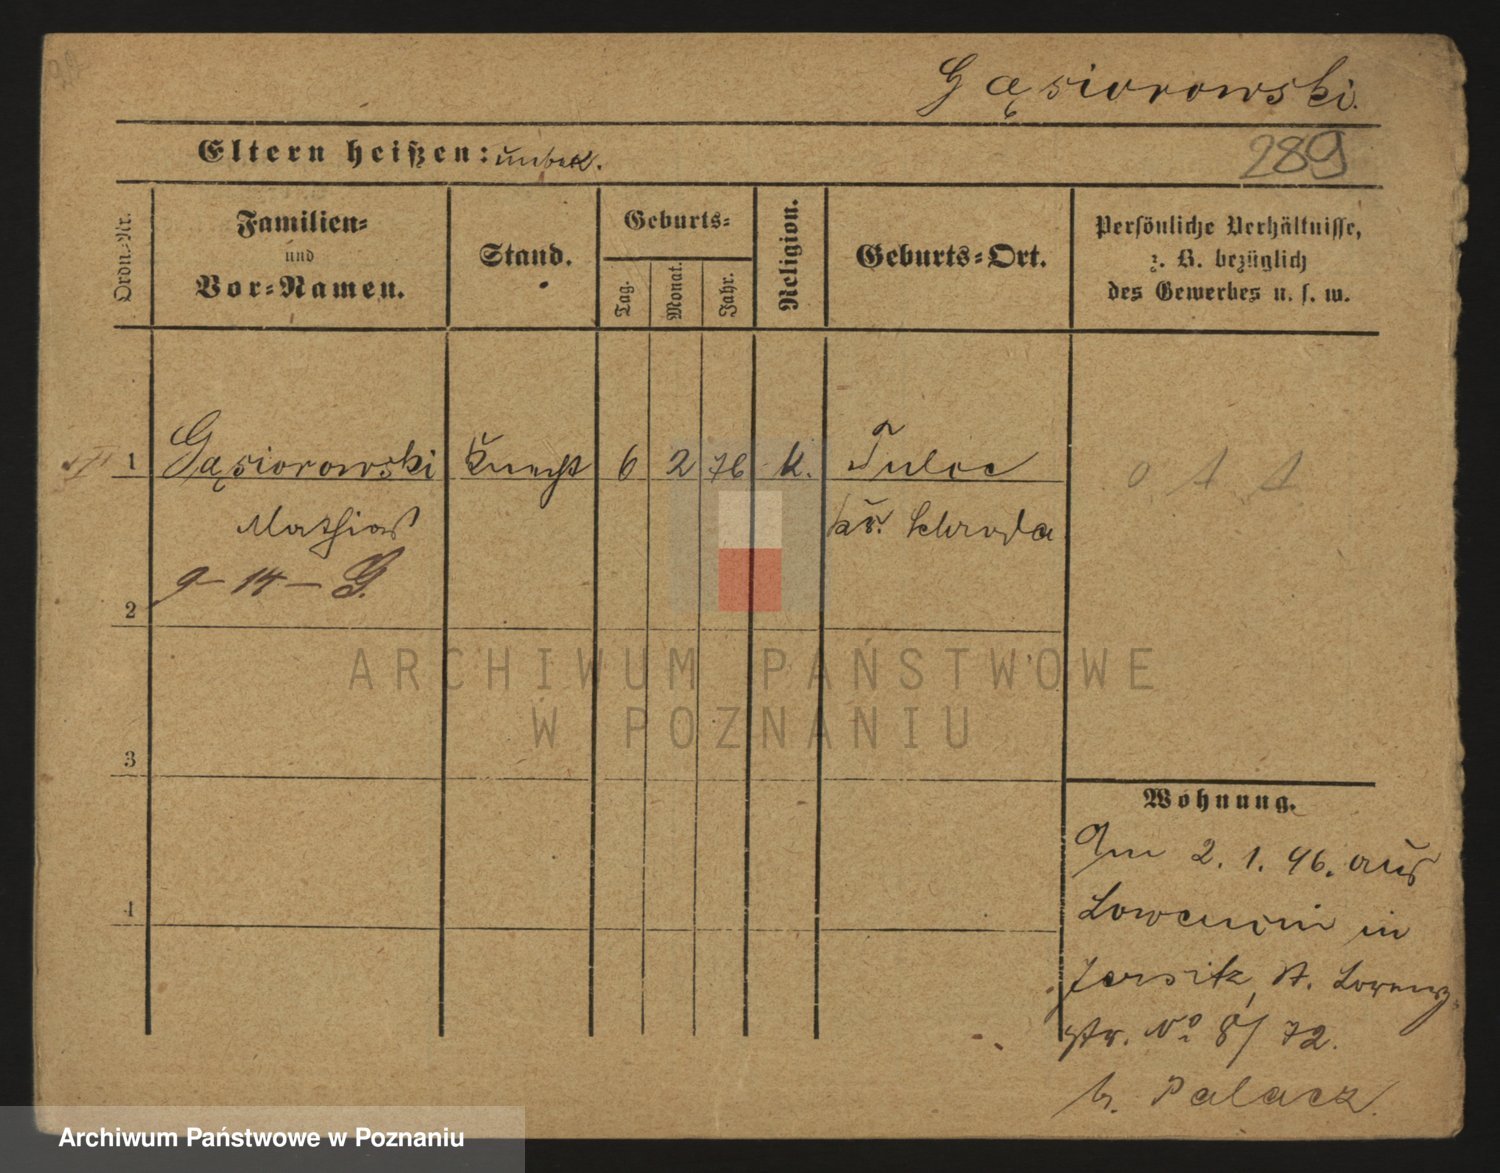 Gąsiorowski.
Eltern heißen: unbek.
289
Ordn.-Nr.
Familien-
und
Vor-Namen.
Stand.
Geburts-
Tag.
Monat.
Jahr.
Religion.
Geburts-Ort.
Persönliche Verhältnisse,
z. B. bezüglich
des Gewerbes u. s. w.
1 Gąsiorowski Knecht 6 2 76 k. Tulce
Mathias Kr. Schroda
9-14-G.
2
3
4
Wohnung.
Am 2. 1. 96. aus
in
Jersitz, St. Lorenz-
str. No 8/72.
b. Palacz.
ARCHIWUM PAŃSTWOWE
W POZNANIU
Archiwum Państwowe w Poznaniu